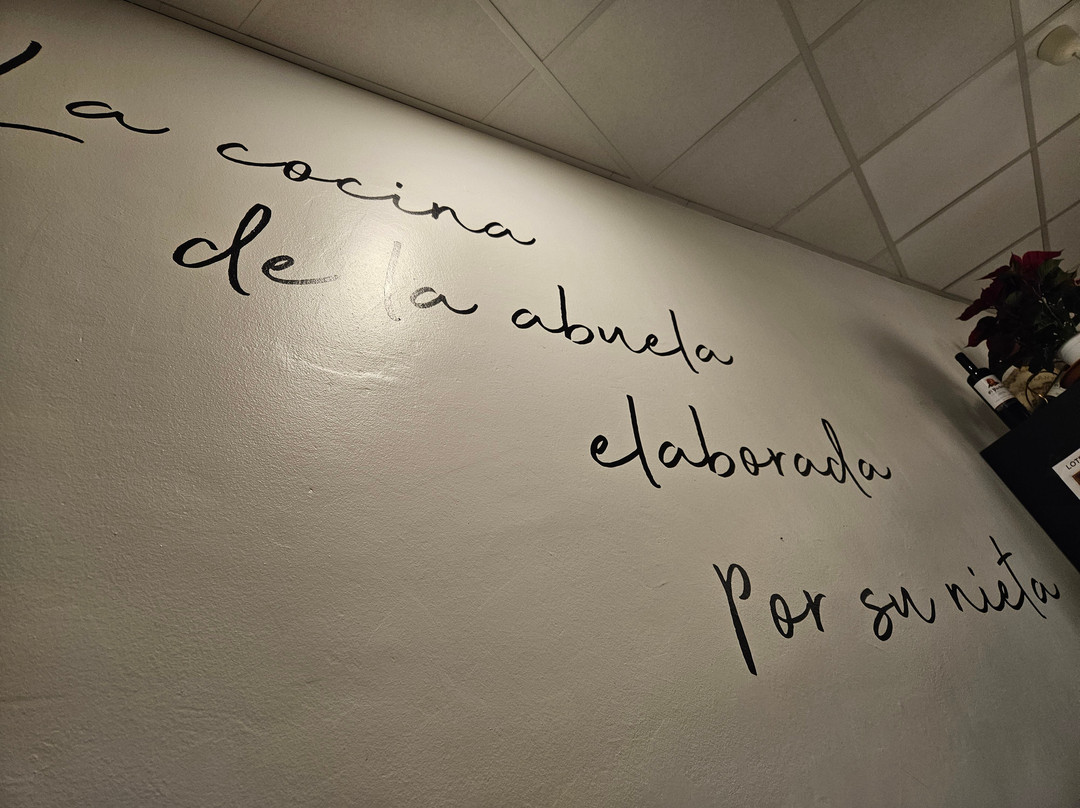 La cocina
de la abuela
elaborada
por su nieta
LOT